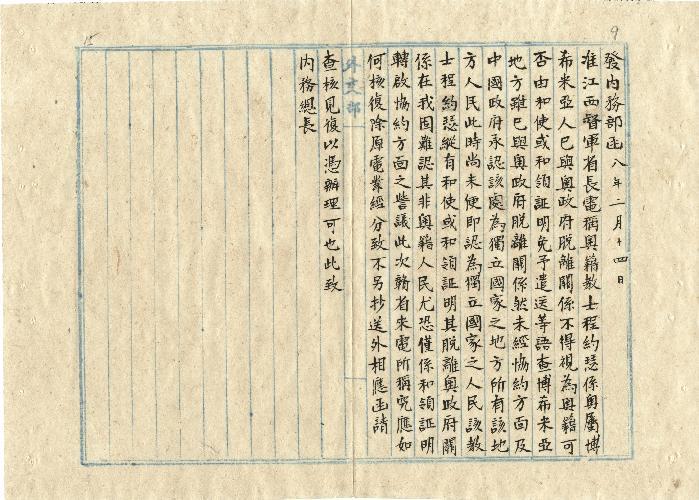 9
15
發內務部函 八年二月十四日
准江西督軍省長電稱奧籍教士程約瑟係奧屬博
希米亞人已與奧政府脫離關係不得視為奧籍可
否由和使或和領証明免予遣送等語查博希米亞
地方雖已與奧政府脫離關係然未經協約方面及
中國政府承認該處為獨立國家之地方所有該地
方人民此時尚未便即認為獨立國家之人民該教
士程約瑟縱有和使或和領証明其脫離奧政府關
係在我固難認其非奧籍人民尤恐僅係和領証明
轉啟協約方面之訾議此次贛省來電所稱究應如
何核復除原電業經分致不另抄送外相應函請
外交部
查核見復以憑辦理可也此致
內務總長